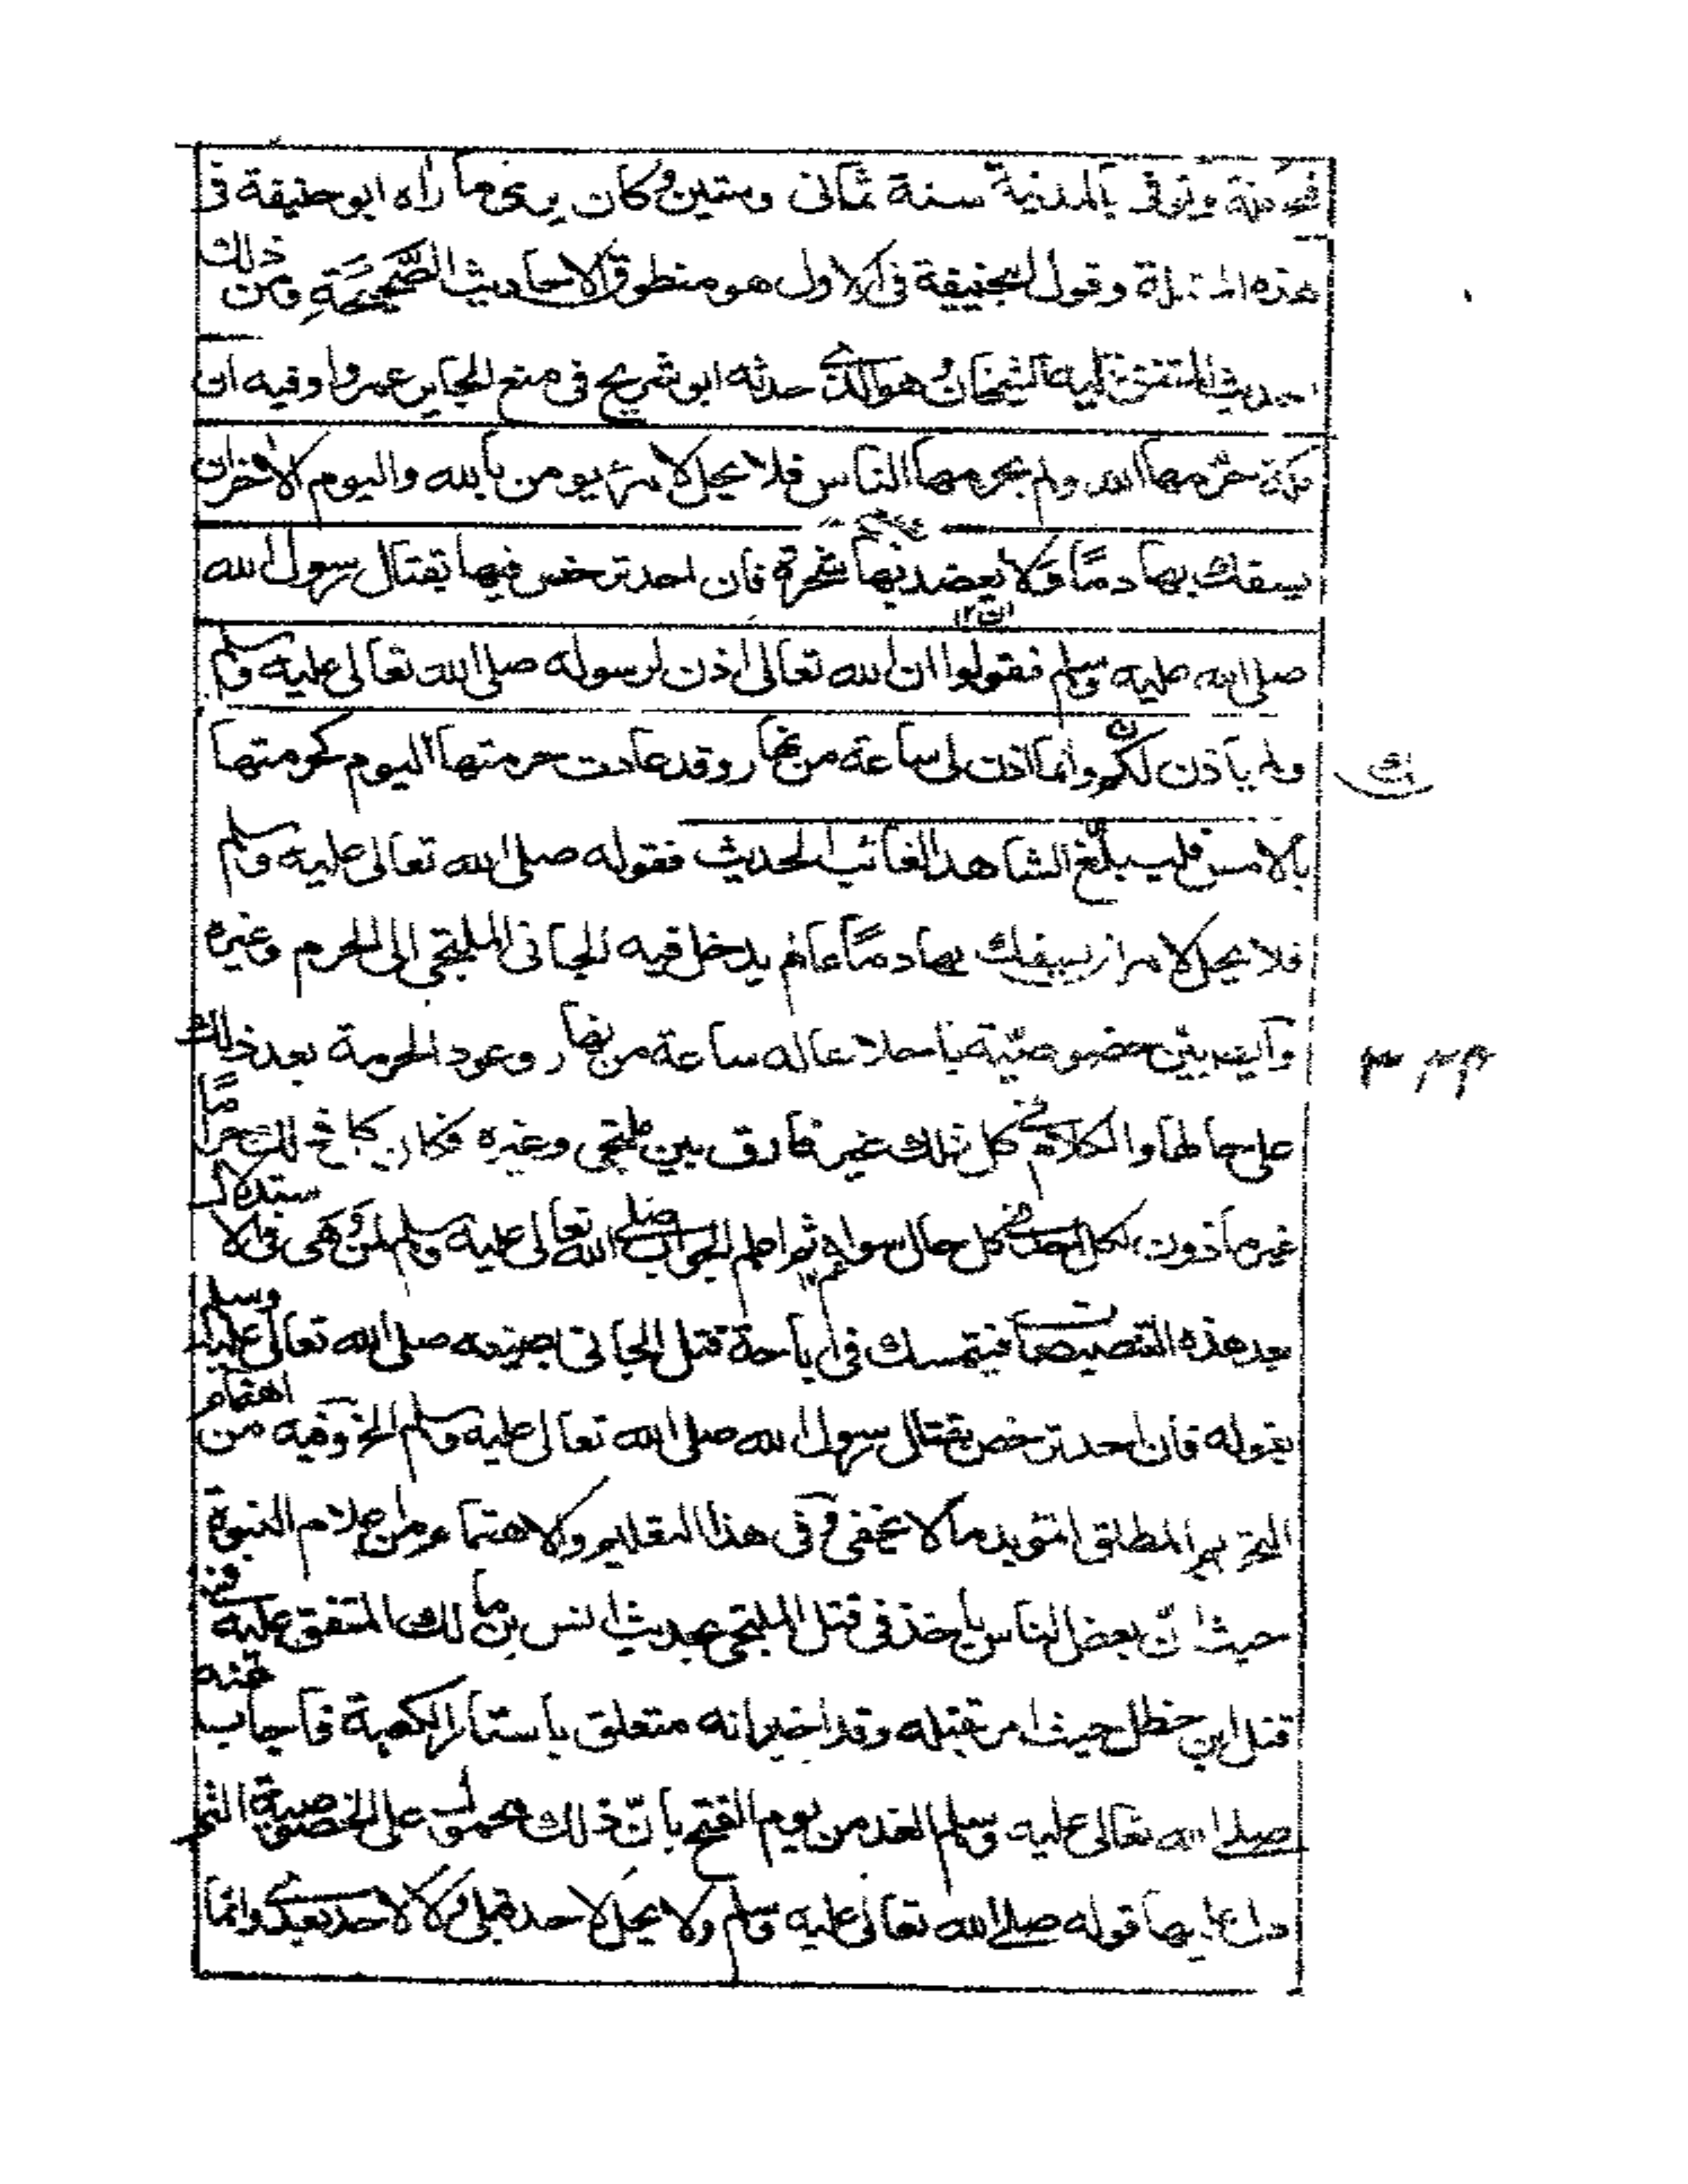 وتوفى بالمدينة سنة ثمانى وستين وكان يرى ما راه ابو حنيفة فى
هذه المسئلة وقول ابيحنيفة فى الاول هو منطوق الاحاديث الصحيحة فمن ذلك
الحديث المتفق عليه الشيخان وهو الذى حدثه ابو شريح فى منع الجابر عمروا وفيه ان
مكة حرمها الله ولم يحرمها الناس فلا يحل لامرئ يومن بالله واليوم الاخر ان
يسفك بها دمًا ولا يعضد بها شجرة فان احد ترخص فيها بقتال رسول الله
صلى الله عليه وسلم فقولوا ان الله تعالى اذن لرسوله صلى الله تعالى عليه وسلم
ولم ياذن لكم وانما اذن لى ساعة من نهار وقد عادت حرمتها اليوم كحرمتها
بالامس فليبلغ الشاهد الغائب الحديث فقوله صلى الله تعالى عليه وسلم
فلا يحل لامرا ان يسفك بها دمًا عام يدخل فيه الجانى الملتجى الى الحرم وغيره
وايضا بين خصوصية باحلاعاله ساعة من نهار وعود الحرمة بعد ذلك
على حالها والكلام فى كل ذلك غير فارق بين ملتجى وغيره فكان كل ذلك حرامًا
غير ماذون لكل احد فى كل حال سواه ثم الجواب صلى الله تعالى عليه وسلم لمن فى الاستدلال
بعد هذه فيتمسك فى اباحة قتل الجانى بصنيعه صلى الله تعالى عليه وسلم
بقوله فان احد ترخص بقتال رسول الله صلى الله تعالى عليه وسلم الخ وفيه من اهتمام
التحريم المطلق المؤبد ما لا يخفى وفى هذا التعليم والاهتمام من اعلام النبوة
حيث ان بعض الناس ياخذ فى قتل الملتجى بحديث انس بن مالك المتفق عليه فى
قتل ابن خطل حيث امر بقتله وقد اخبر انه متعلق باستار الكعبة فاجاب عنه
صلى الله تعالى عليه وسلم الغد من يوم الفتح بان ذلك محمول على الخصوصية التى
دل عليها قوله صلى الله تعالى عليه وسلم ولا يحل لاحد قبلى ولا لاحد بعدى وانما